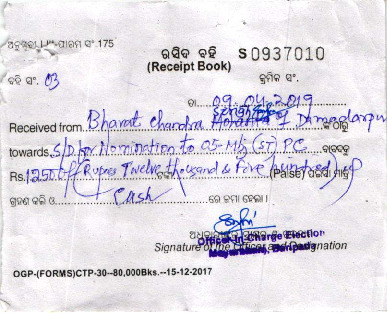 ଅନୁସୂଚୀ LII-ଫାରମ ସଂ.175
ରସିଦ ବହି S 0937010
(Receipt Book)
ବହି ସଂ. 03 କ୍ରମିକ ସଂ.
ତା 09.04.2019
Received from Bharat Chandra of Damodarpur ଠାରୁ
towards S/D for Nomination to 05-Mbj (ST) PC ବାବଦକୁ
Rs. 12500/- (Rupees Twelve thousand & Five hundred) of (Paise) ପଇସା ମାତ୍ର
ଗ୍ରହଣ କରି ଓ Cash ରେ ଜମା ହେଲା।
Signature of the Officer and Designation
Officer In Charge Election
Mayurbhanj, Baripada
OGP-(FORMS)CTP-30--80,000Bks.--15-12-2017